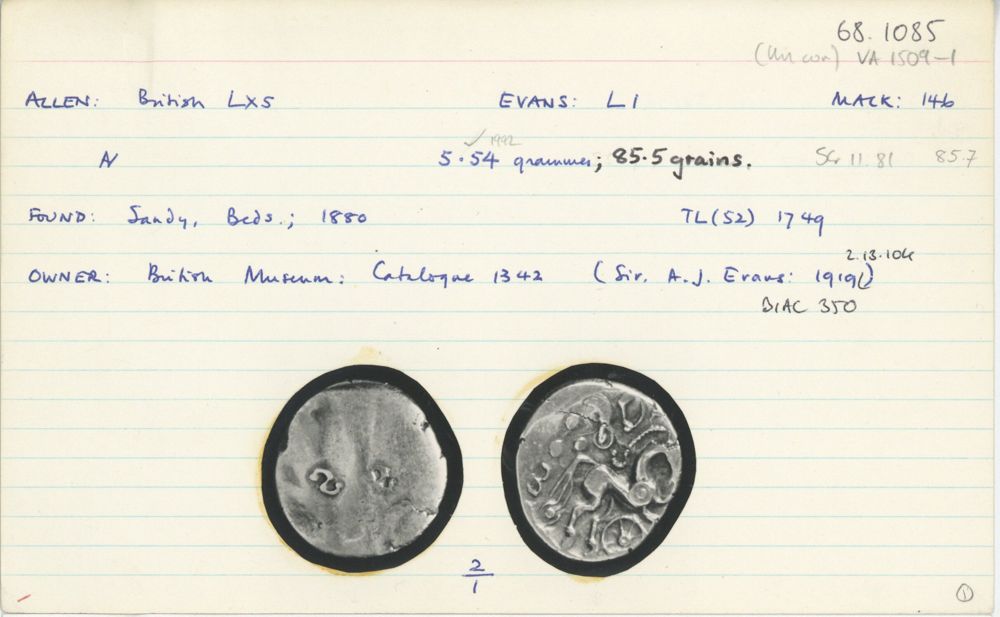 68.1085
(Uncon) VA 1509-1
ALLEN: British LX5 EVANS: L1 MACK: 146
N ✓ 1992 5.54 grammes; 85.5 grains. SG 11.81 85.7
FOUND: Sandy, Beds.; 1880 TL(52) 1749
OWNER: British Museum: Catalogue 1342 (Sir. A.J. Evans: 1919)
2.13.104
BIAC 350
2/1
1